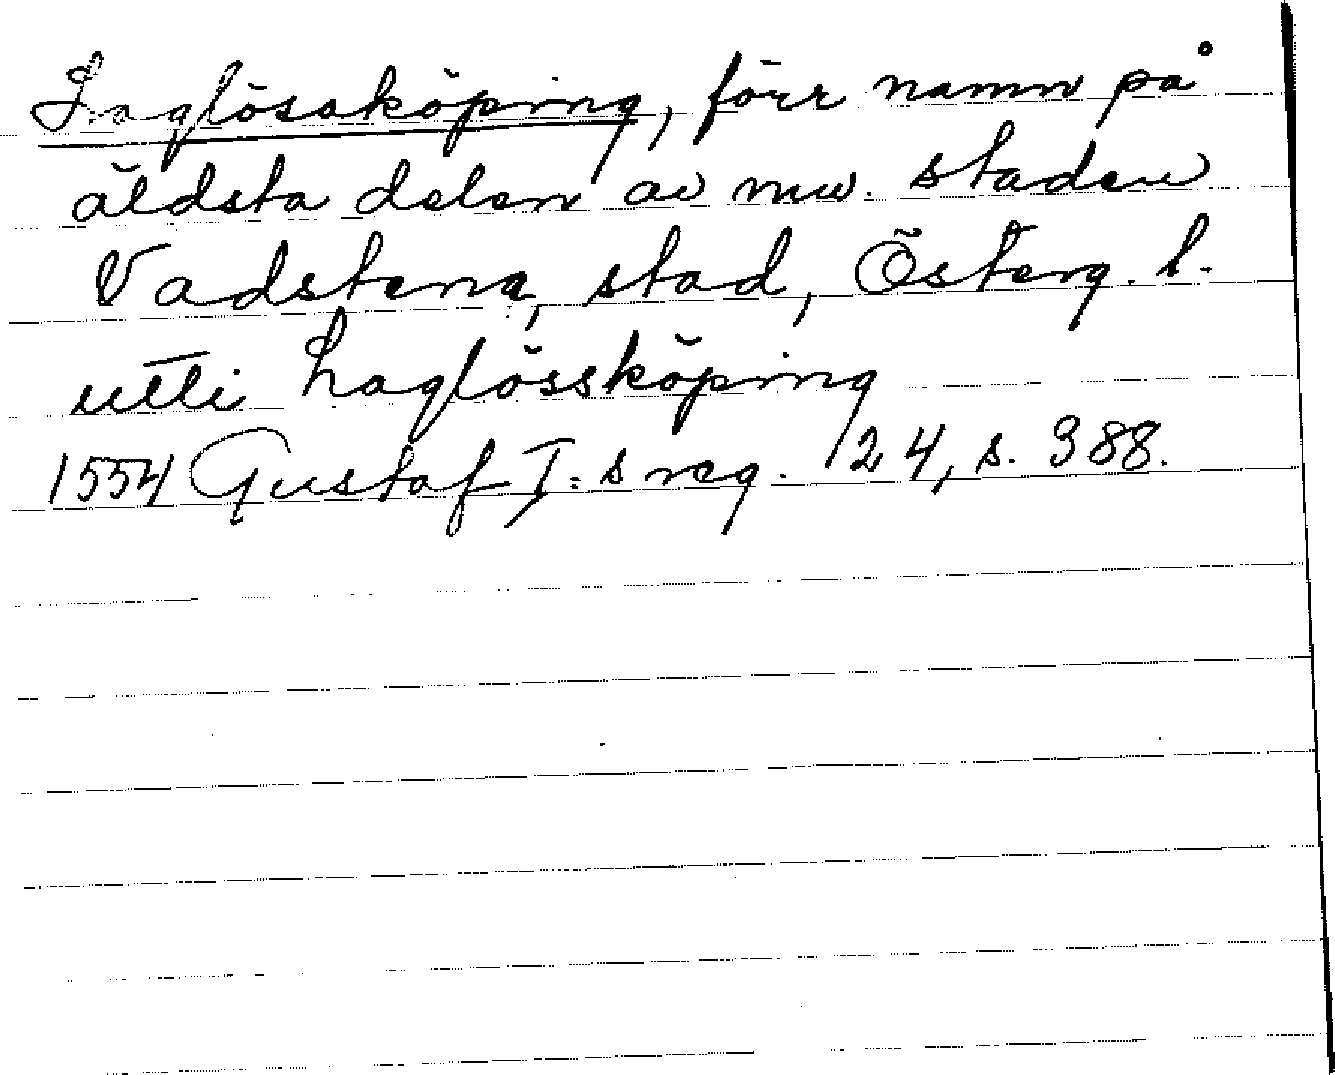 Laglösaköping, förr namn på
äldsta delen av nuv. staden
Vadstena, stad, Österg. l.
utti laglössköping
1554 Gustaf I:s reg. 24, s. 388.